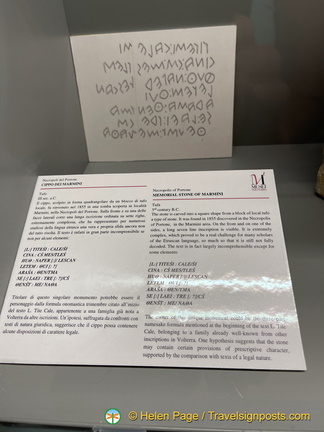 Necropoli del Portone
CIPPO DEI MARMINI
Tufo
III sec. a.C.
Il cippo, scolpito in forma quadrangolare da un blocco di tufo
locale, fu rinvenuto nel 1855 in una tomba scoperta in località
Marmini, nella Necropoli del Portone. Sulla fronte e su una delle
facce laterali corre una lunga iscrizione ordinata su sette righe,
estremamente complessa, che ha rappresentato per numerosi
studiosi della lingua etrusca una vera e propria sfida ancora non
del tutto risolta. Il testo è infatti in gran parte incomprensibile se
non per alcuni elementi.
TITEŚI : CALEŚI
CINA : CŚ MESTLEŚ
HUΘ : NAPER
LEŚCAN
LETEM : ΘUI
ARAŚA : ΘENTMA
SE
LAEI : TRE
ΘENŚT : ME
Titolare di questo singolare monumento potrebbe essere il
personaggio dalla formula onomastica trimembre citato all'inizio
del testo L. Tite Cale, appartenente a una famiglia già nota a
Volterra da altre iscrizioni. Un'ipotesi, suffragata da confronti con
testi di natura giuridica, suggerisce che il cippo possa contenere
alcune disposizioni di carattere legale.
Necropolis of Portone
MEMORIAL STONE OF MARMINI
MUSEI
Tufa
3rd century B.C.
The stone is carved into a square shape from a block of local tufo
a type of stone. It was found in 1855 discovered in the Necropolis
of Portone, in the Marmini area. On the front and on one of the
sides, a long seven line inscription is visible. It is extremely
complex, which proved to be a real challenge for many scholars
of the Etruscan language, so much so that it is still not fully
decoded. The text is in fact largely incomprehensible except for
some elements
TITEŚI : CALEŚI
CINA : CŚ MESTLEŚ
HUΘ : NAPER
LEŚCAN
LETEM : ΘUI
ARAŚA : ΘENTMA
SE
LAEI : TRE
ΘENŚT : ME
namesake formula mentioned at the beginning of the text L. Tite
Cale, belonging to a family already well-known from other
inscriptions in Volterra. One hypothesis suggests that the stone
may contain certain provisions of prescriptive character,
supported by the comparison with texts of a legal nature.
© Helen Page / Travelsignposts.com